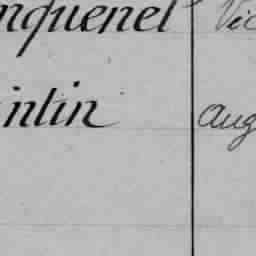 nquenel Vic
intin Aug